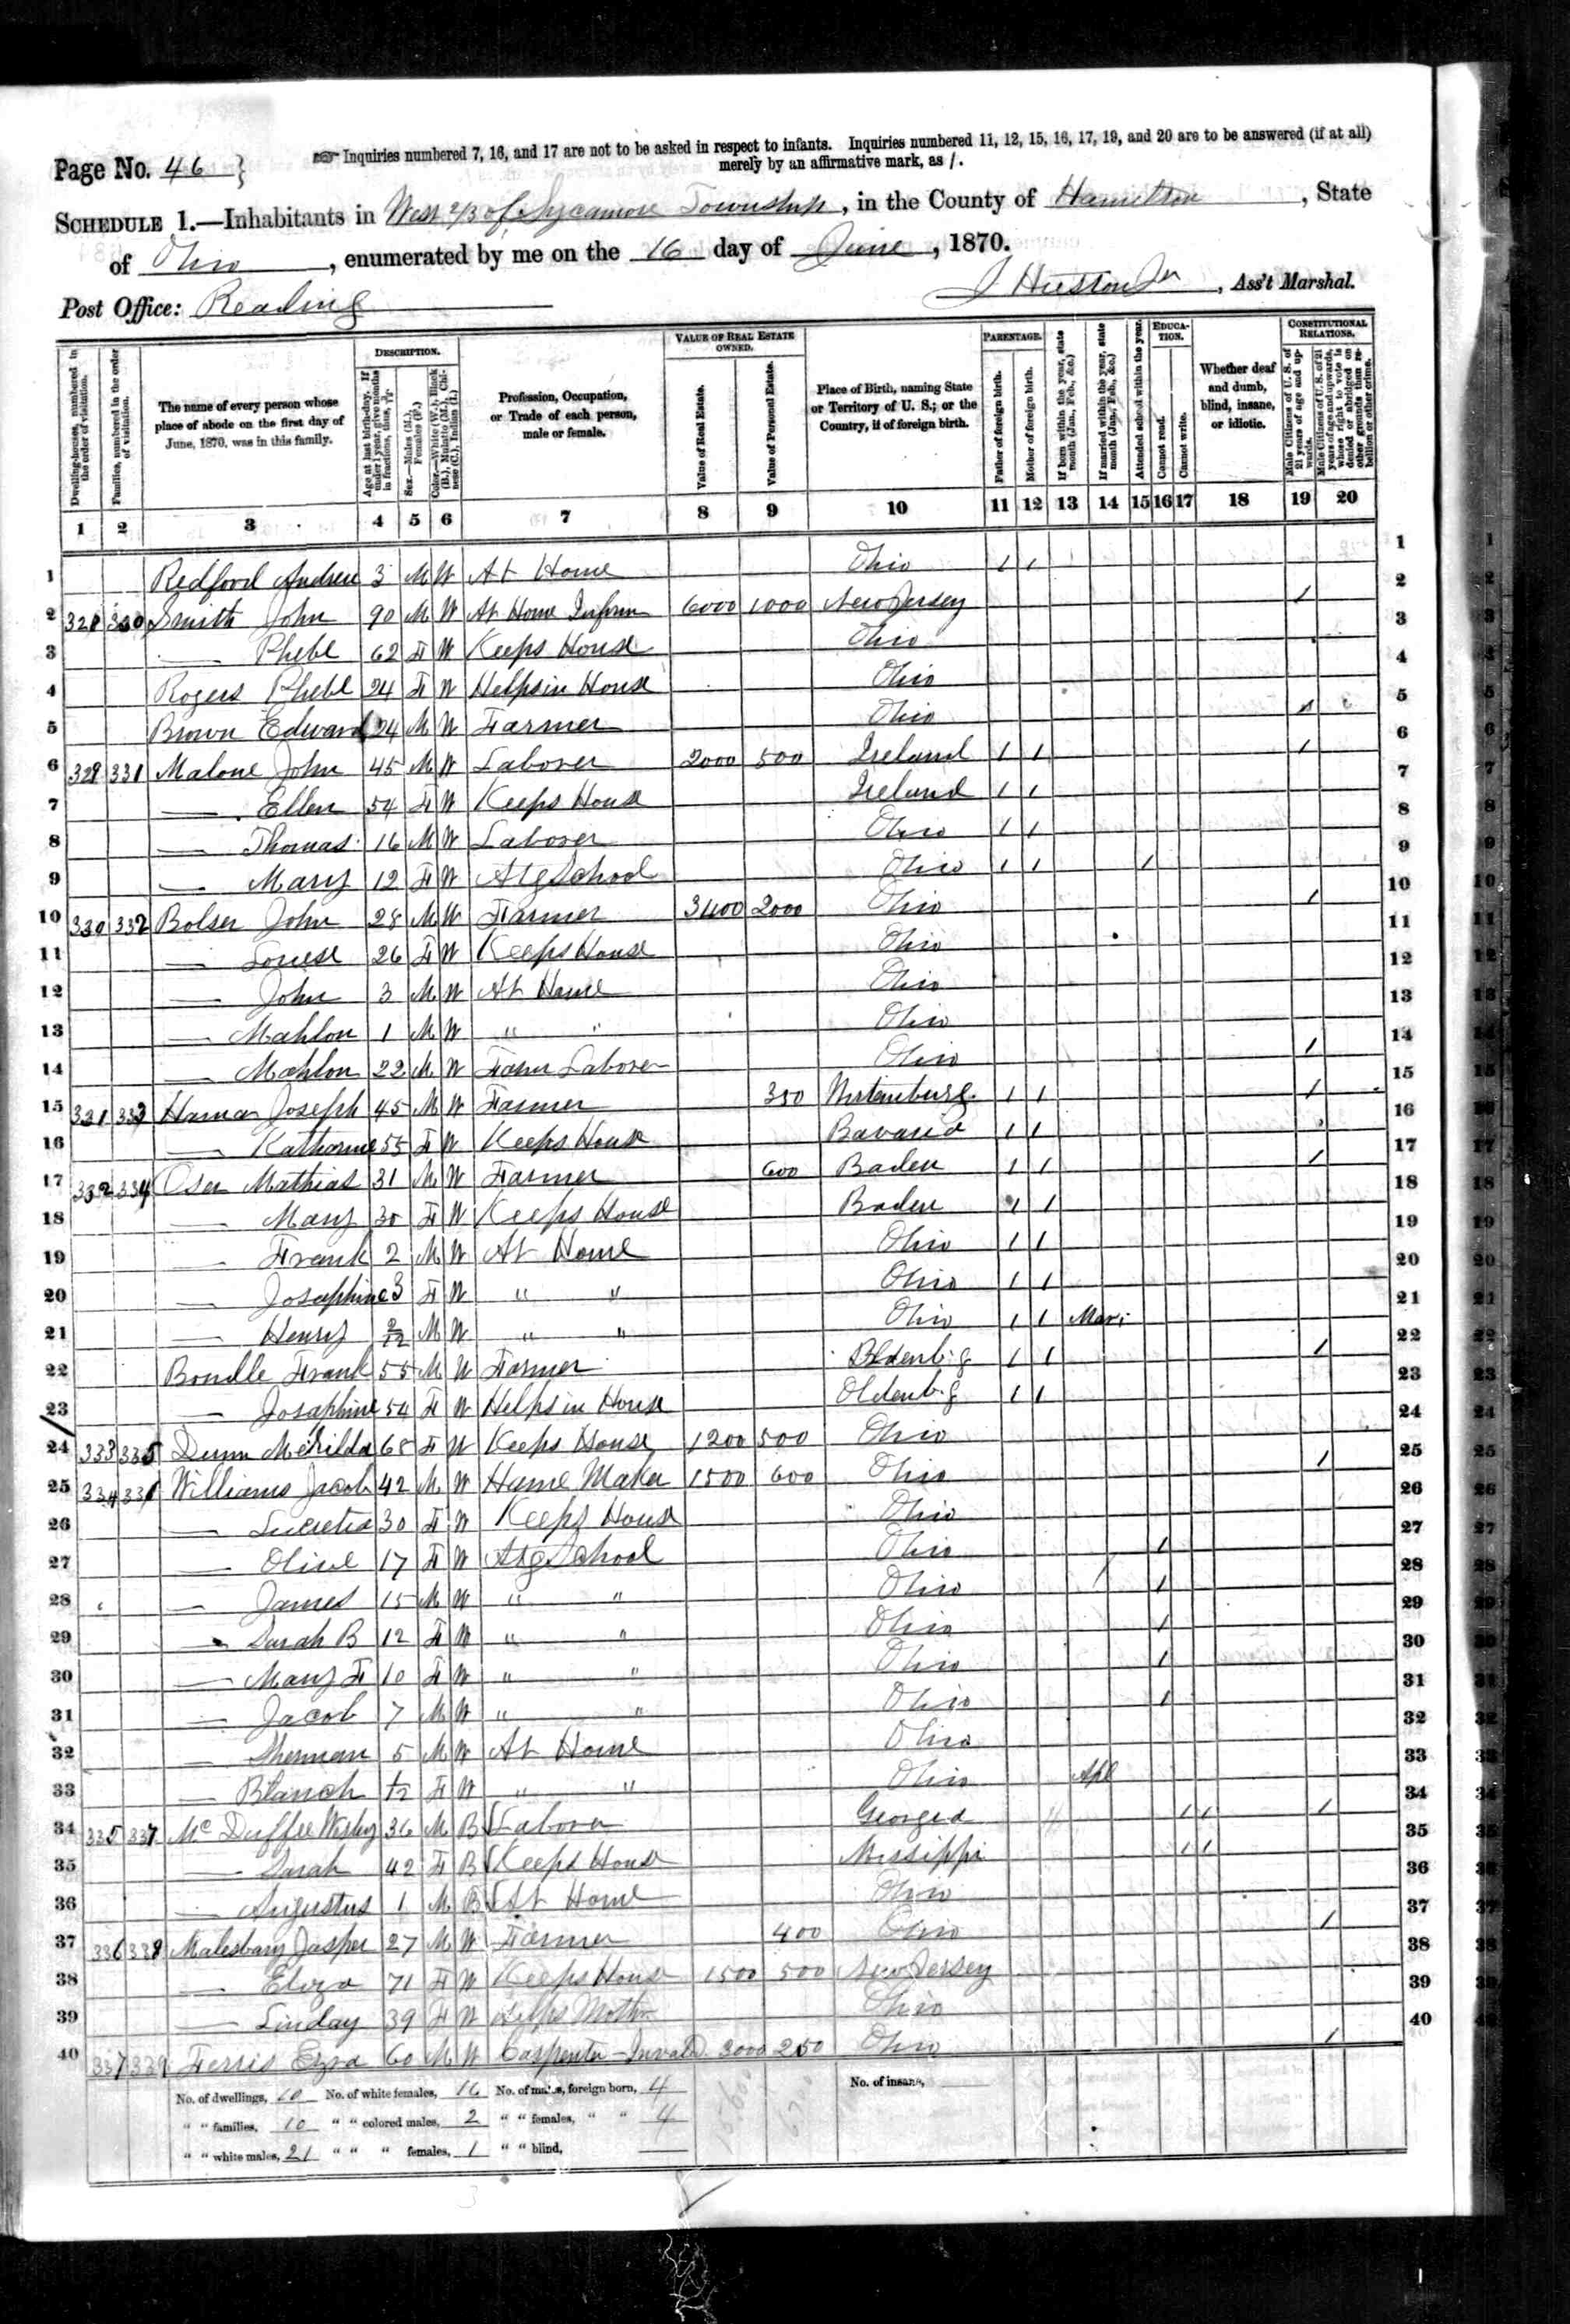 Page No. 46
Inquiries numbered 7, 16, and 17 are not to be asked in respect to infants. Inquiries numbered 11, 12, 15, 16, 17, 19, and 20 are to be answered (if at all)
merely by an affirmative mark, as /.
SCHEDULE 1.—Inhabitants in West 2/3 of Sycamore Township, in the County of Hamilton, State
of Ohio, enumerated by me on the 16 day of June, 1870.
Post Office: Reading
J Huston Jr, Ass't Marshal.
Dwelling-houses, numbered in the order of visitation.
Families, numbered in the order of visitation.
The name of every person whose place of abode on the first day of June, 1870, was in this family.
DESCRIPTION.
Age at last birth-day. If under 1 year, give months in fractions, thus, 3/12.
Sex.—Males (M.), Females (F.)
Color.—White (W.), Black (B.), Mulatto (M.), Chinese (C.), Indian (I.)
Profession, Occupation, or Trade of each person, male or female.
VALUE OF REAL ESTATE OWNED.
Value of Real Estate.
Value of Personal Estate.
Place of Birth, naming State or Territory of U. S.; or the Country, if of foreign birth.
PARENTAGE.
Father of foreign birth.
Mother of foreign birth.
If born within the year, state month (Jan., Feb., &c.)
If married within the year, state month (Jan., Feb., &c.)
Attended school within the year.
EDUCATION.
Cannot read.
Cannot write.
Whether deaf and dumb, blind, insane, or idiotic.
CONSTITUTIONAL RELATIONS.
Male Citizens of U. S. of 21 years of age and upwards.
Male Citizens of U. S. of 21 years of age and upwards, whose right to vote is denied or abridged on other grounds than rebellion or other crime.
1 2 3 4 5 6 7 8 9 10 11 12 13 14 15 16 17 18 19 20
1 Redford Andrew 3 M W At Home Ohio / / 1
2 328 330 Smith John 90 M W At Home Infirm 6000 1000 New Jersey / 2
3 — Phebe 62 F W Keeps House Ohio 3
4 Rogers Phebe 24 F W Helps in House Ohio 4
5 Brown Edward 24 M W Farmer Ohio / 5
6 329 331 Malone John 45 M W Laborer 2000 500 Ireland / / / 6
7 — Ellen 54 F W Keeps House Ireland / / 7
8 — Thomas 16 M W Laborer Ohio / / 8
9 — Mary 12 F W Atg School Ohio / / / 9
10 330 332 Bolser John 28 M W Farmer 3400 2000 Ohio / 10
11 — Louese 26 F W Keeps House Ohio 11
12 — John 3 M W At Home Ohio 12
13 — Mahlon 1 M W " " Ohio 13
14 — Mahlon 22 M W Farm Laborer Ohio / 14
15 331 333 Joseph 45 M W Farmer Wirtemburg / / / 15
16 — Katharine 55 F W Keeps House Bavaria / / 16
17 332 334 Oser Mathias 31 M W Farmer 600 Baden / / / 17
18 — Mary 30 F W Keeps House Baden / / 18
19 — Frank 2 M W At Home Ohio / / 19
20 — Josephine 3 F W " " Ohio / / 20
21 — Henry 2/12 M W " " Ohio / / Mar 21
22 Frank 55 M W Farmer Oldenb'g / / / 22
23 — Josephine 54 F W Helps in House Oldenb'g / / 23
24 333 335 Dunn 68 F W Keeps House 1200 500 Ohio 24
25 334 336 Williams Jacob 42 M W Hame Maker 1500 600 Ohio / 25
26 — Lucretia 30 F W Keeps House Ohio 26
27 — Olive 17 F W Atg School Ohio / 27
28 — James 15 M W " " Ohio / 28
29 — Sarah B 12 F W " " Ohio / 29
30 — Mary F 10 F W " " Ohio / 30
31 — Jacob 7 M W " " Ohio / 31
32 — Sherman 5 M W At Home Ohio 32
33 — Blanch 1/12 F W " " Ohio Apl 33
34 335 337 Mc Duffee Wesley 36 M B Laborer Georgia / / / 34
35 — Sarah 42 F B Keeps House Missippi / / 35
36 — Augustus 1 M B At Home Ohio 36
37 336 338 Malesbary Jasper 27 M W Farmer 400 Ohio / 37
38 — Eliza 71 F W Keeps House 1500 500 New Jersey 38
39 — Linday 39 F W Helps Mother Ohio 39
40 337 339 Ferris Ezra 60 M W Carpenter-Invalid 3000 250 Ohio / 40
No. of dwellings, 10 No. of white females, 16 No. of males, foreign born, 4 No. of insane,
" " families, 10 " " colored males, 2 " " females, " " 4
" " white males, 21 " " " females, 1 " " blind, —